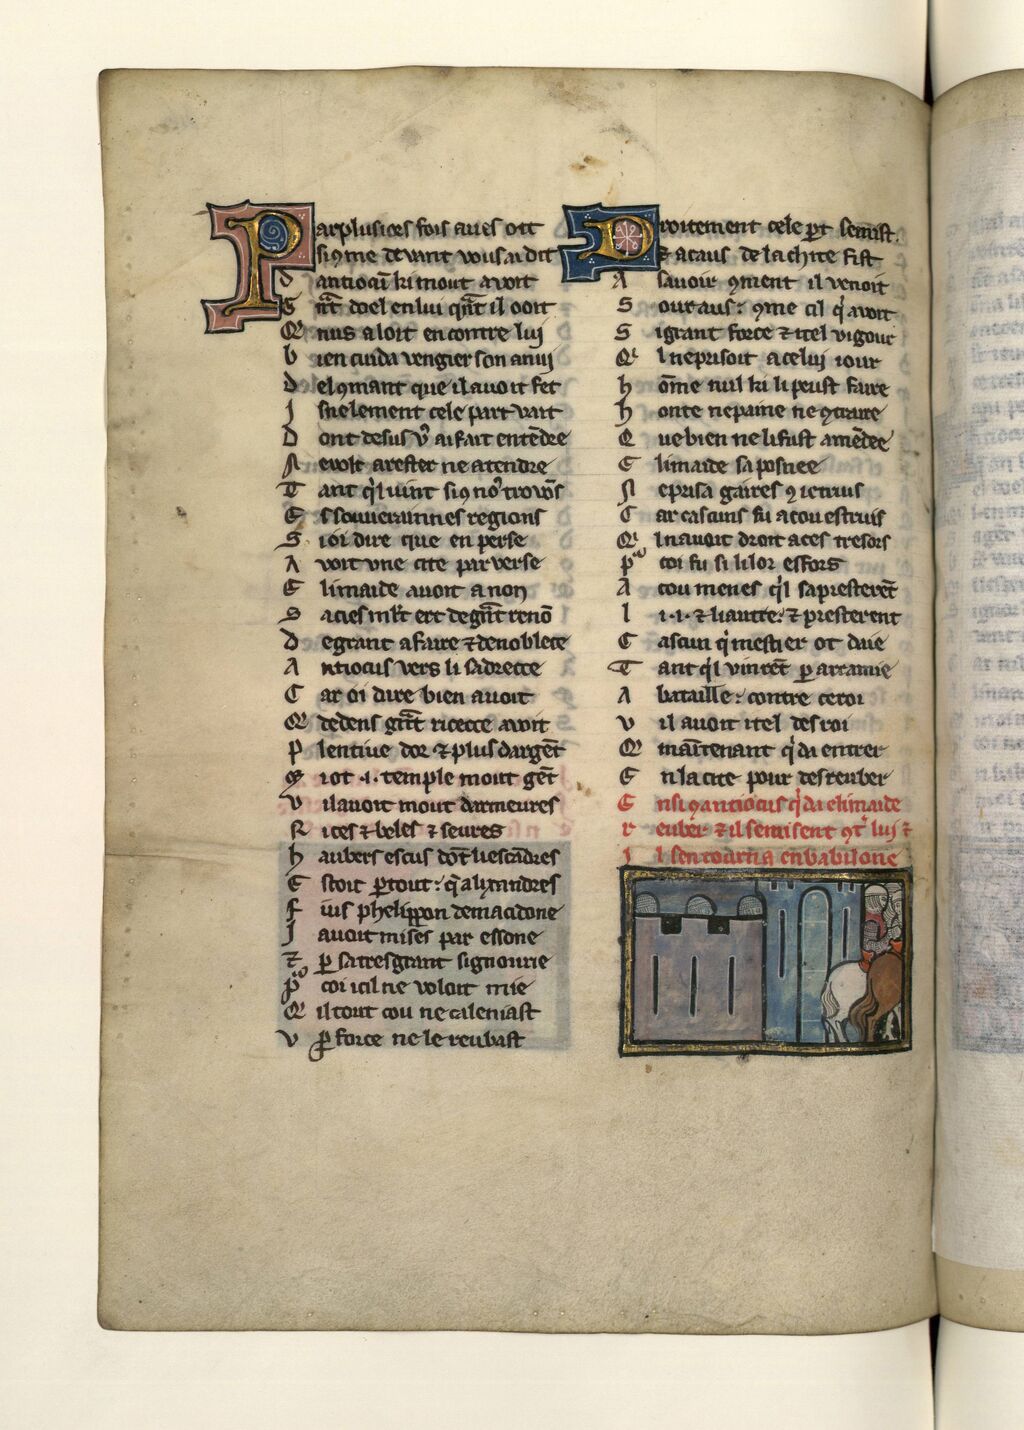 Par plusiors fois aves oit
si 9me devant vous ai dit
d antiocū ki mout avoit
G rāt doel en lui q̄nt il ooit
Q nus aloit encontre lui
b ien cuida vengier son anui
d el 9mant que il avoit fet
J snelement cele part vait
D ont desus v9 ai fait entēdre
N e volt arester ne atendre
T ant q'l vint si 9 no9 trovōs
E s souverainnes regions
S i oi dire que en perse
A voit une cite par verse
E limaide avoit a non
S acies ml't ert de grāt renō
D e grant afaire ⁊ de noblece
A ntiocus vers li s'adrecce
C ar oi dire bien avoit
Q dedens grāt ricecce avoit
P lentive dor ⁊ plus dargēt
Q i ot .i. temple mout gēt
V il avoit mout darmeures
R ices ⁊ beles ⁊ seures
h aubers escus dōt li escādres
E stoit ꝑ tout: q̄ alixandres
F ius phelippon de macidone
J avoit mises par essone
⁊ ꝑ sa tres grant signourie
P coi icil ne voloit mie
Q il tout cou ne caleniast
V ꝑ force ne le reubast
Droitement cele ꝑt semist.
⁊ a caus de la chite fist
A savoir 9ment il venoit
S our aus: 9me cil q' avoit
S i grant force ⁊ itel vigour
Q l ne prisoit a celui iour
h ōme nul ki li peust faire
h onte ne paine ne 9traire
Q ue bien ne li fust amēdee
E limaide sa posnee
N e prisa gaires 9 ientius
C ar cascuns fu acou estruis
Q l navoit droit a ces tresors
P coi fu si li lor esfors
A cou menes q'l sapresterēt
l i .i. ⁊ li autre: ⁊ presterent
C ascun q' mestier ot daie
T ant q'l vinrēt ꝑ arramie
A bataille: contre ce roi
V il avoit itel desroi
Q maītenant q'da entrer
E n la cite pour desreuber
E nsi 9 antiocus q'da elimaide
r euber ⁊ il semisent 9t' lui ⁊
i l sen tourna en babilone